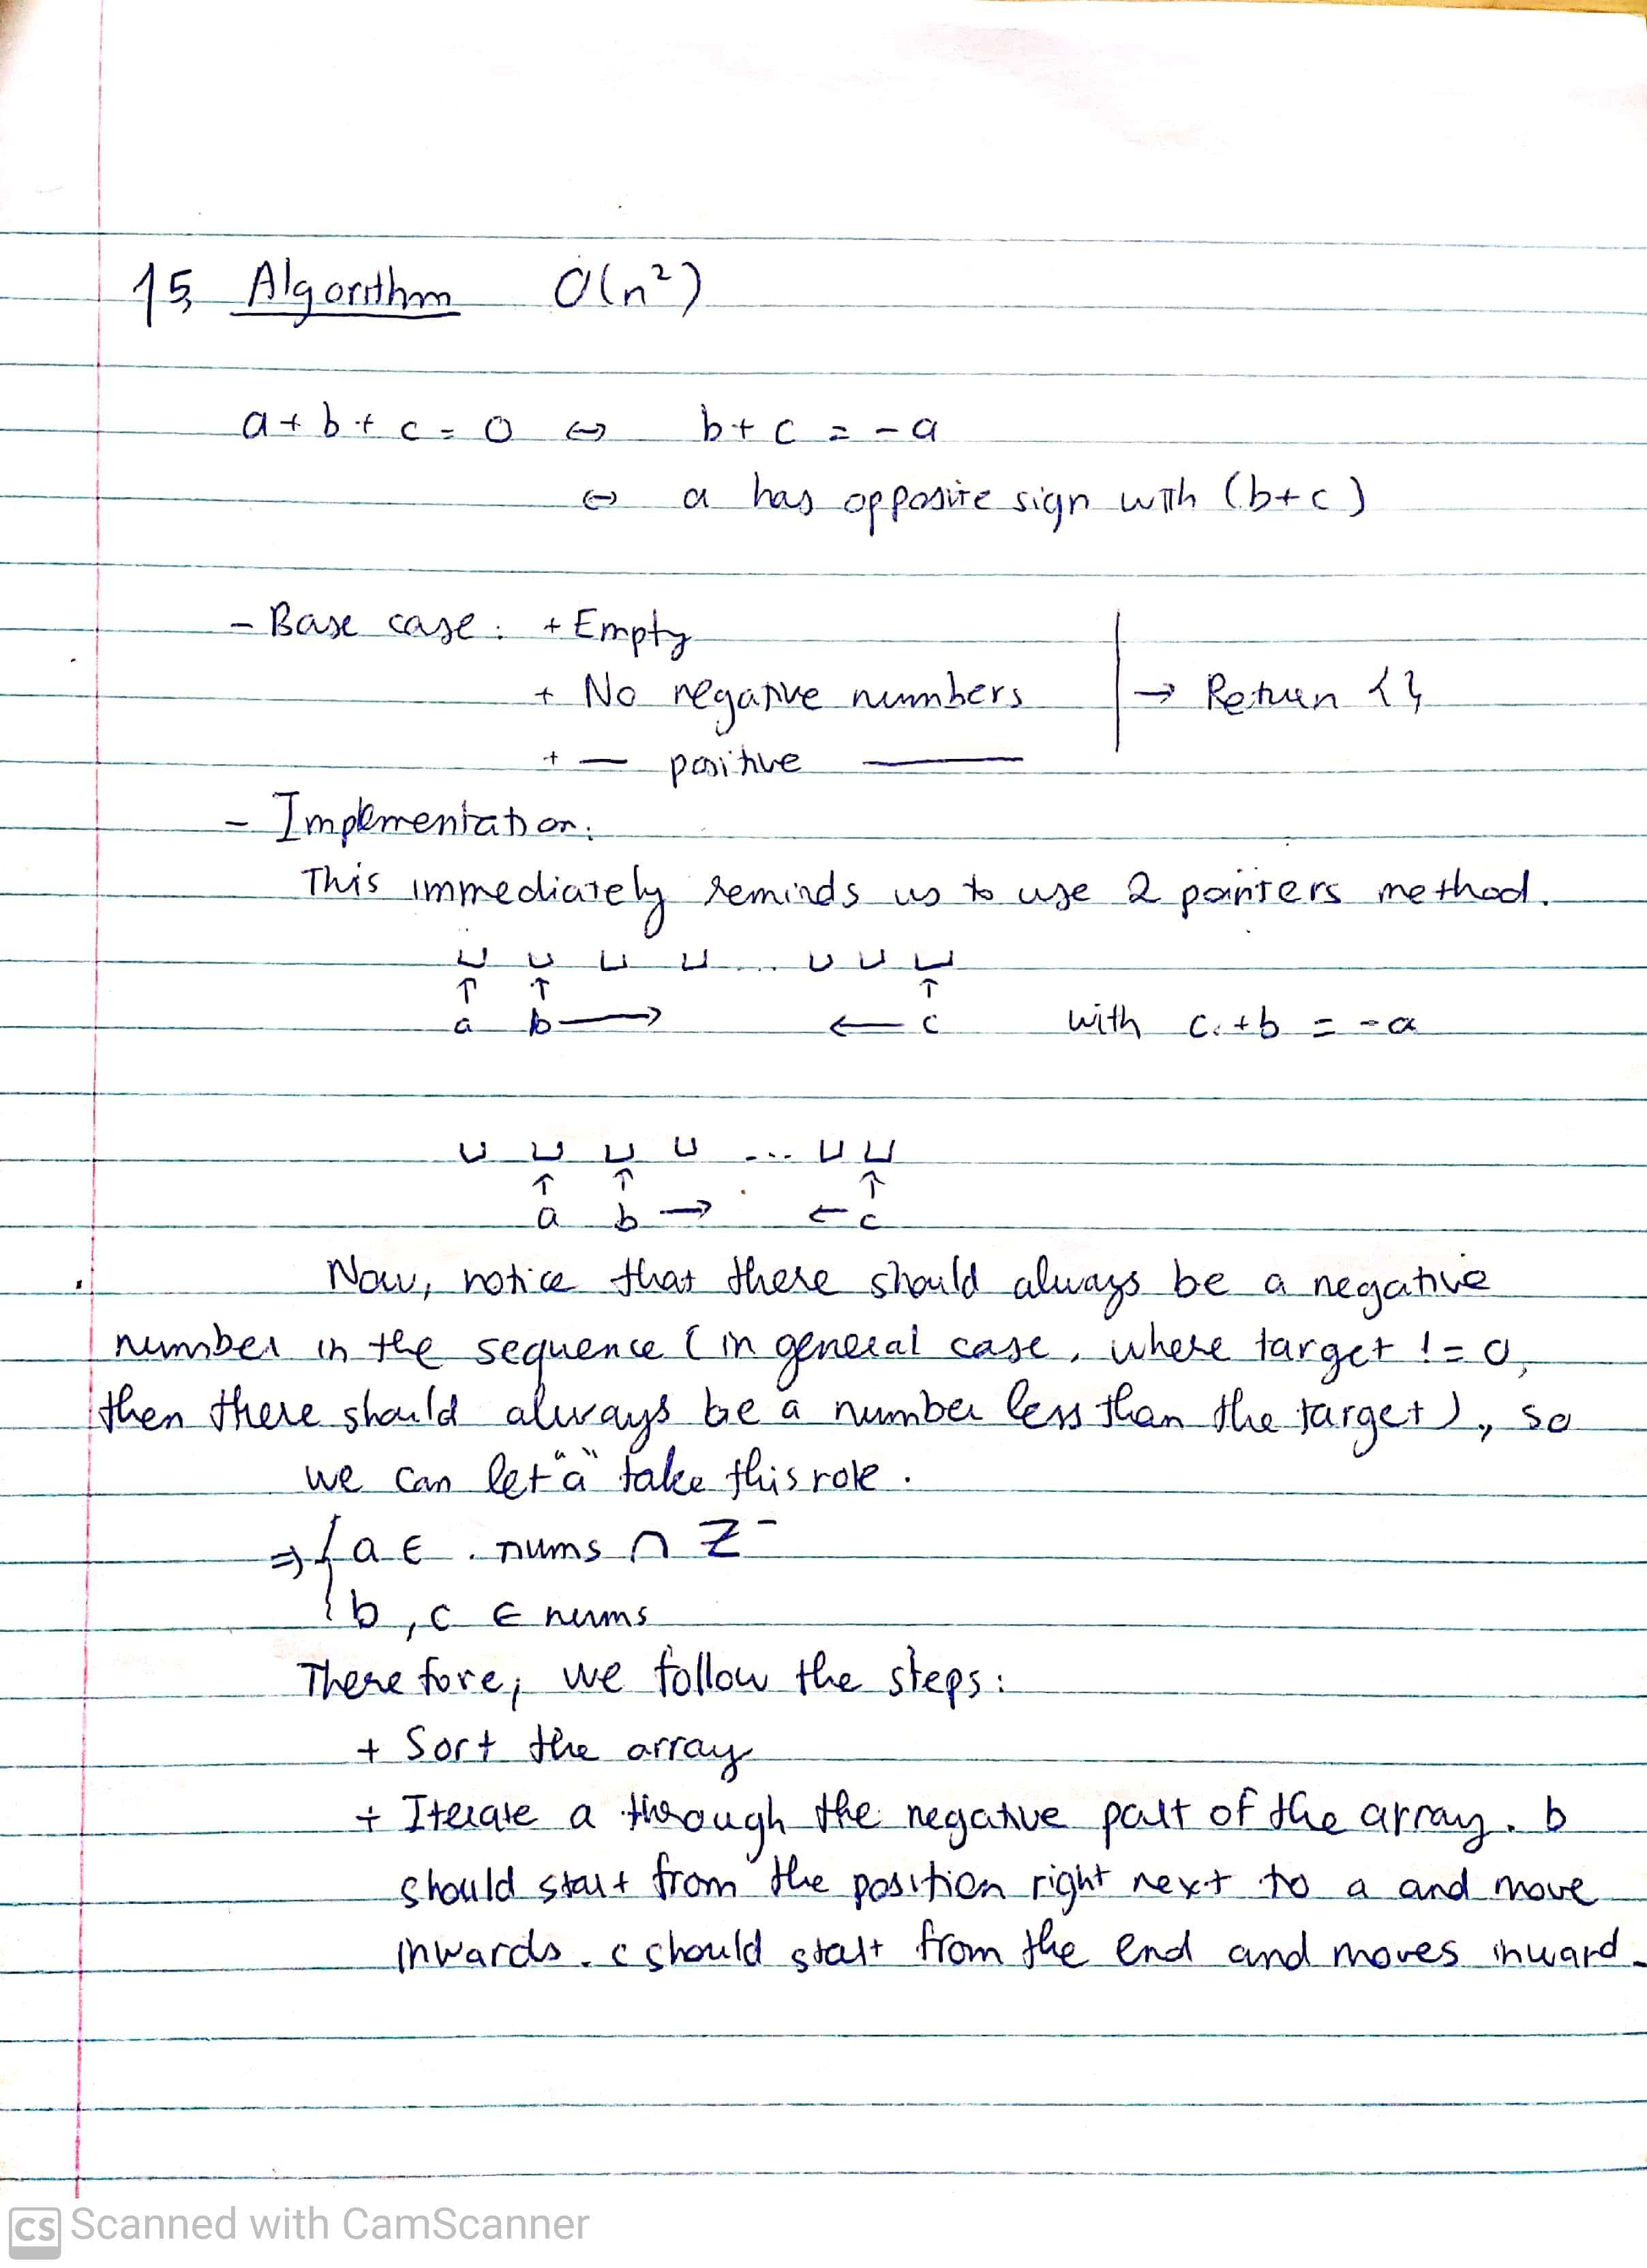 15, Algorithm O(n²)
a + b + c = 0 ⇔ b + c = -a
⇔ a has opposite sign with (b+c)
- Base case: + Empty
+ No negative numbers → Return {}
+ — positive ——
- Implementation:
This immediately reminds us to use 2 pointers method.
⊔ ⊔ ⊔ ⊔ ... ⊔ ⊔ ⊔
↑ ↑ ↑
a b → ← c with c + b = -a
⊔ ⊔ ⊔ ⊔ ... ⊔ ⊔
↑ ↑ ↑
a b → ← c
Now, notice that there should always be a negative
number in the sequence (in general case, where target != 0,
then there should always be a number less than the target), so
we can let "a" take this role.
⇒ { a ∈ nums ∩ Z⁻
{ b, c ∈ nums
Therefore, we follow the steps:
+ Sort the array
+ Iterate a through the negative part of the array. b
should start from the position right next to a and move
inwards. c should start from the end and moves inward.
CS Scanned with CamScanner